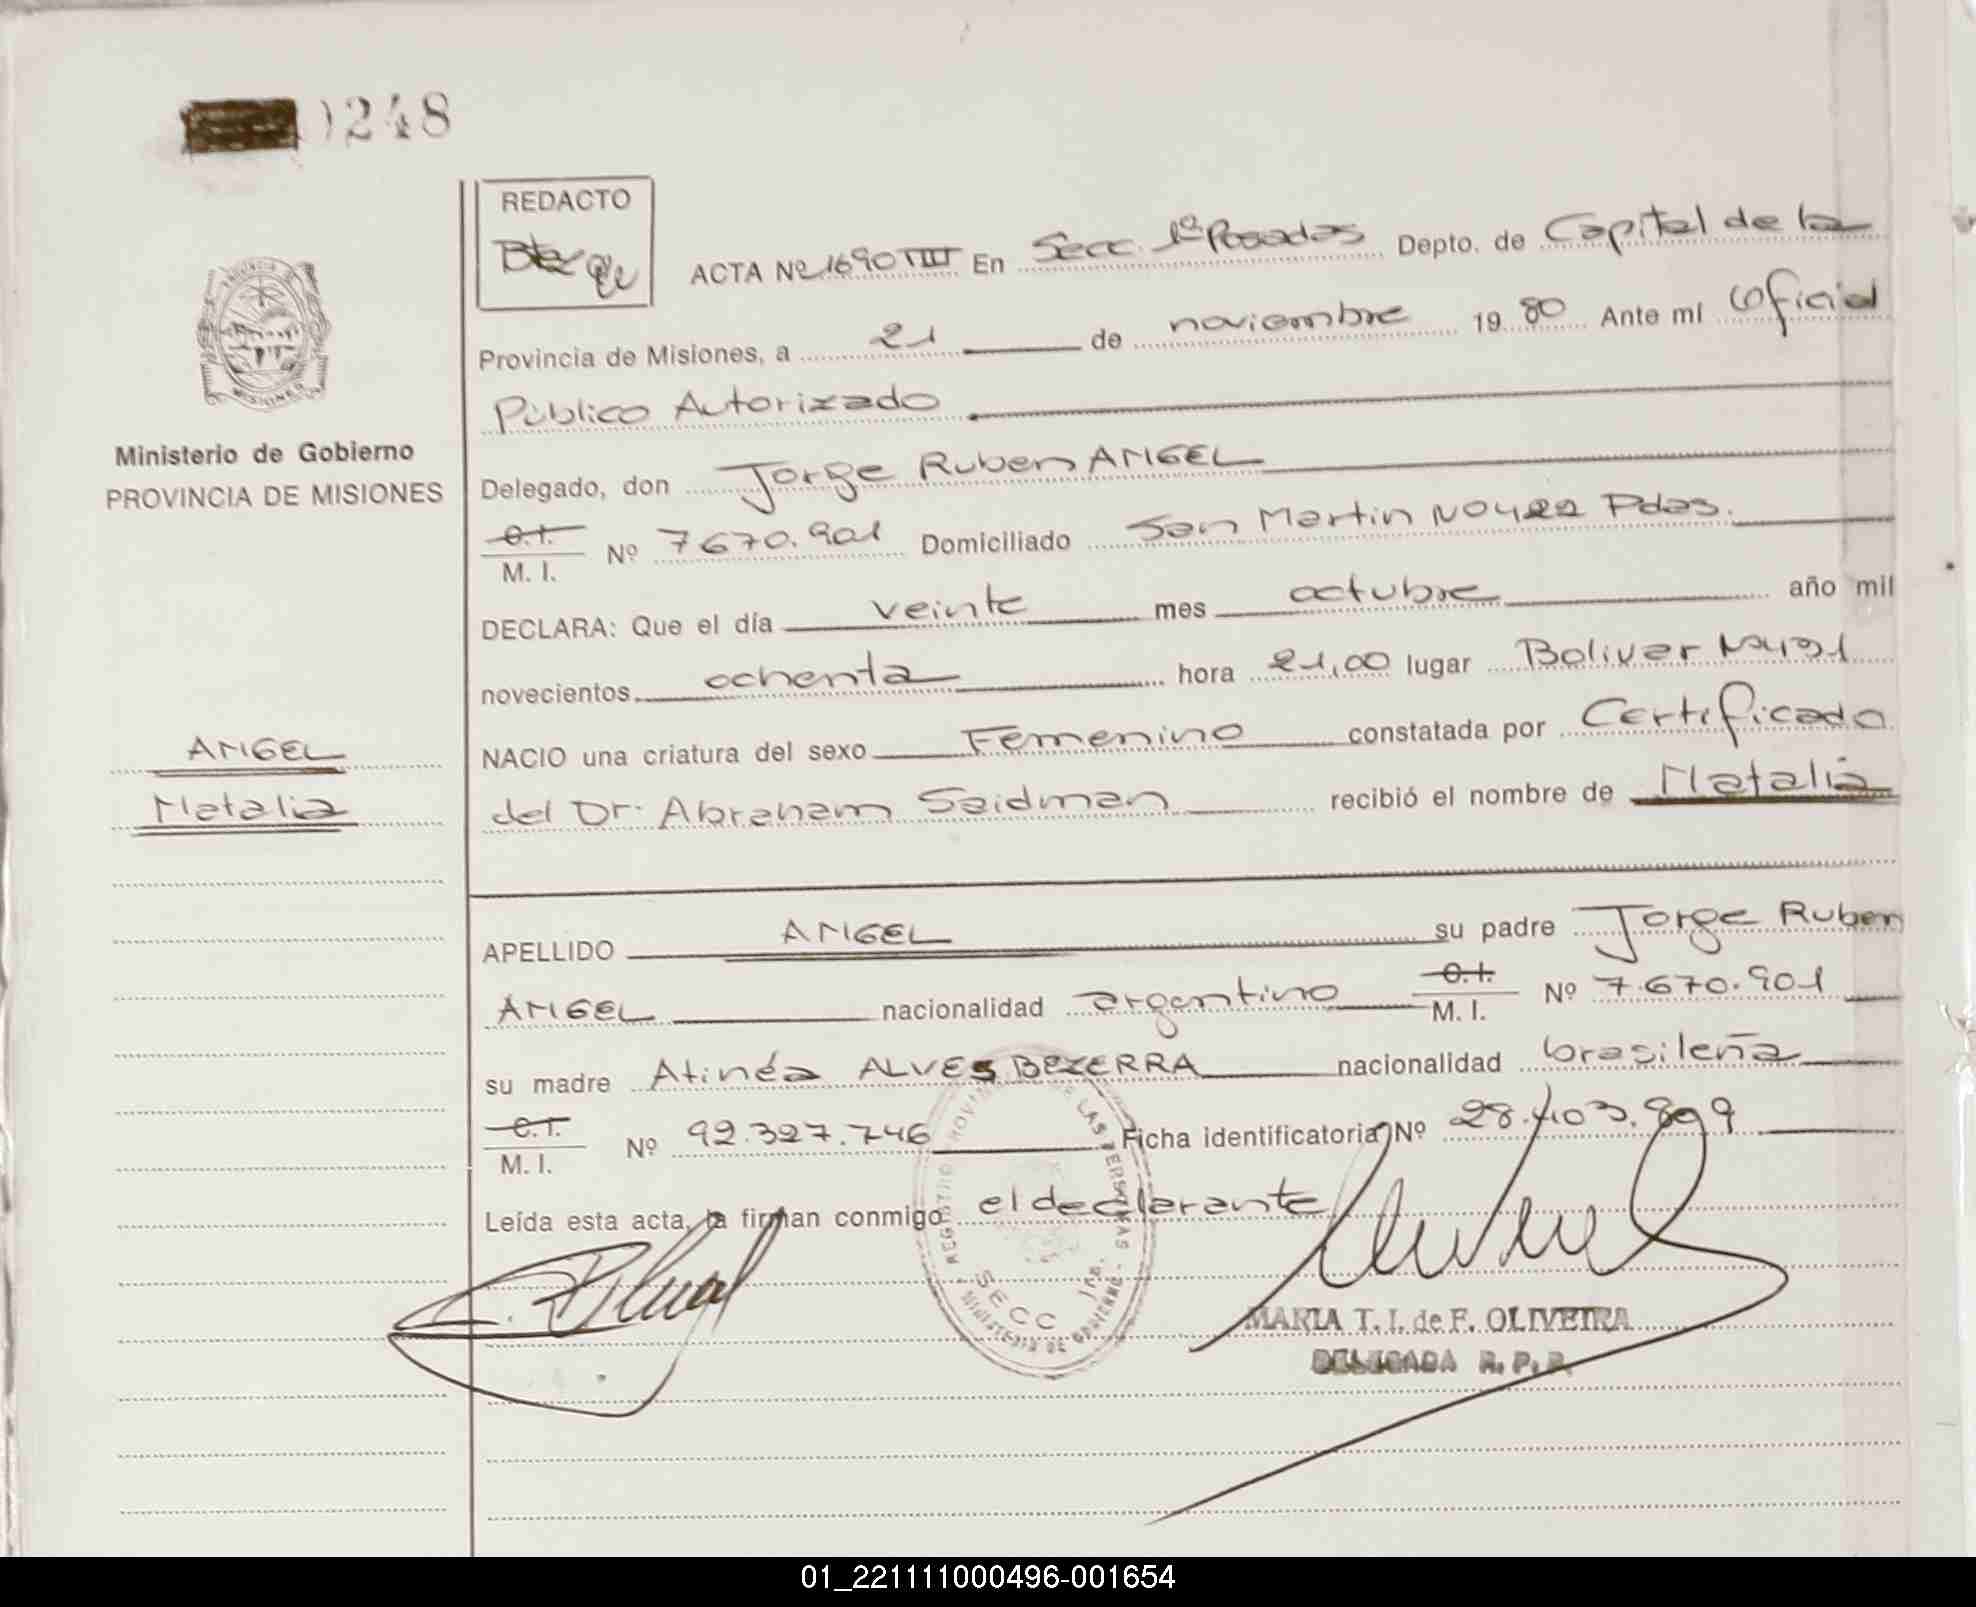 1248
REDACTO
ACTA Nº 1690 TIII En Secc. 1ª Posadas Depto. de Capital de la
Provincia de Misiones, a 21 de noviembre 19 80 Ante mí Oficial
Público Autorizado
Delegado, don Jorge Ruben ANGEL
C.I.
M. I. Nº 7670.901 Domiciliado San Martin Nº Pdas.
DECLARA: Que el día veinte mes octubre año mil
novecientos ochenta hora 21,00 lugar Bolivar
NACIO una criatura del sexo Femenino constatada por Certificado
del Dr. Abraham Saidman recibió el nombre de Natalia
APELLIDO ANGEL su padre Jorge Ruben
ANGEL nacionalidad argentino C.I. M. I. Nº 7.670.901
su madre Atinéa ALVES BEZERRA nacionalidad brasileña
C.I.
M. I. Nº 92.327.746 Ficha identificatoria Nº 28.403.899
Leída esta acta, la firman conmigo el declarante
MARIA T. I. de F. OLIVEIRA
DELEGADA R. P. P.
REGISTRO PROVINCIAL DE LAS PERSONAS - MINISTERIO DE GOBIERNO
SECC 1ra.
PROVINCIA DE
MISIONES
Ministerio de Gobierno
PROVINCIA DE MISIONES
ANGEL
Natalia
01_221111000496-001654